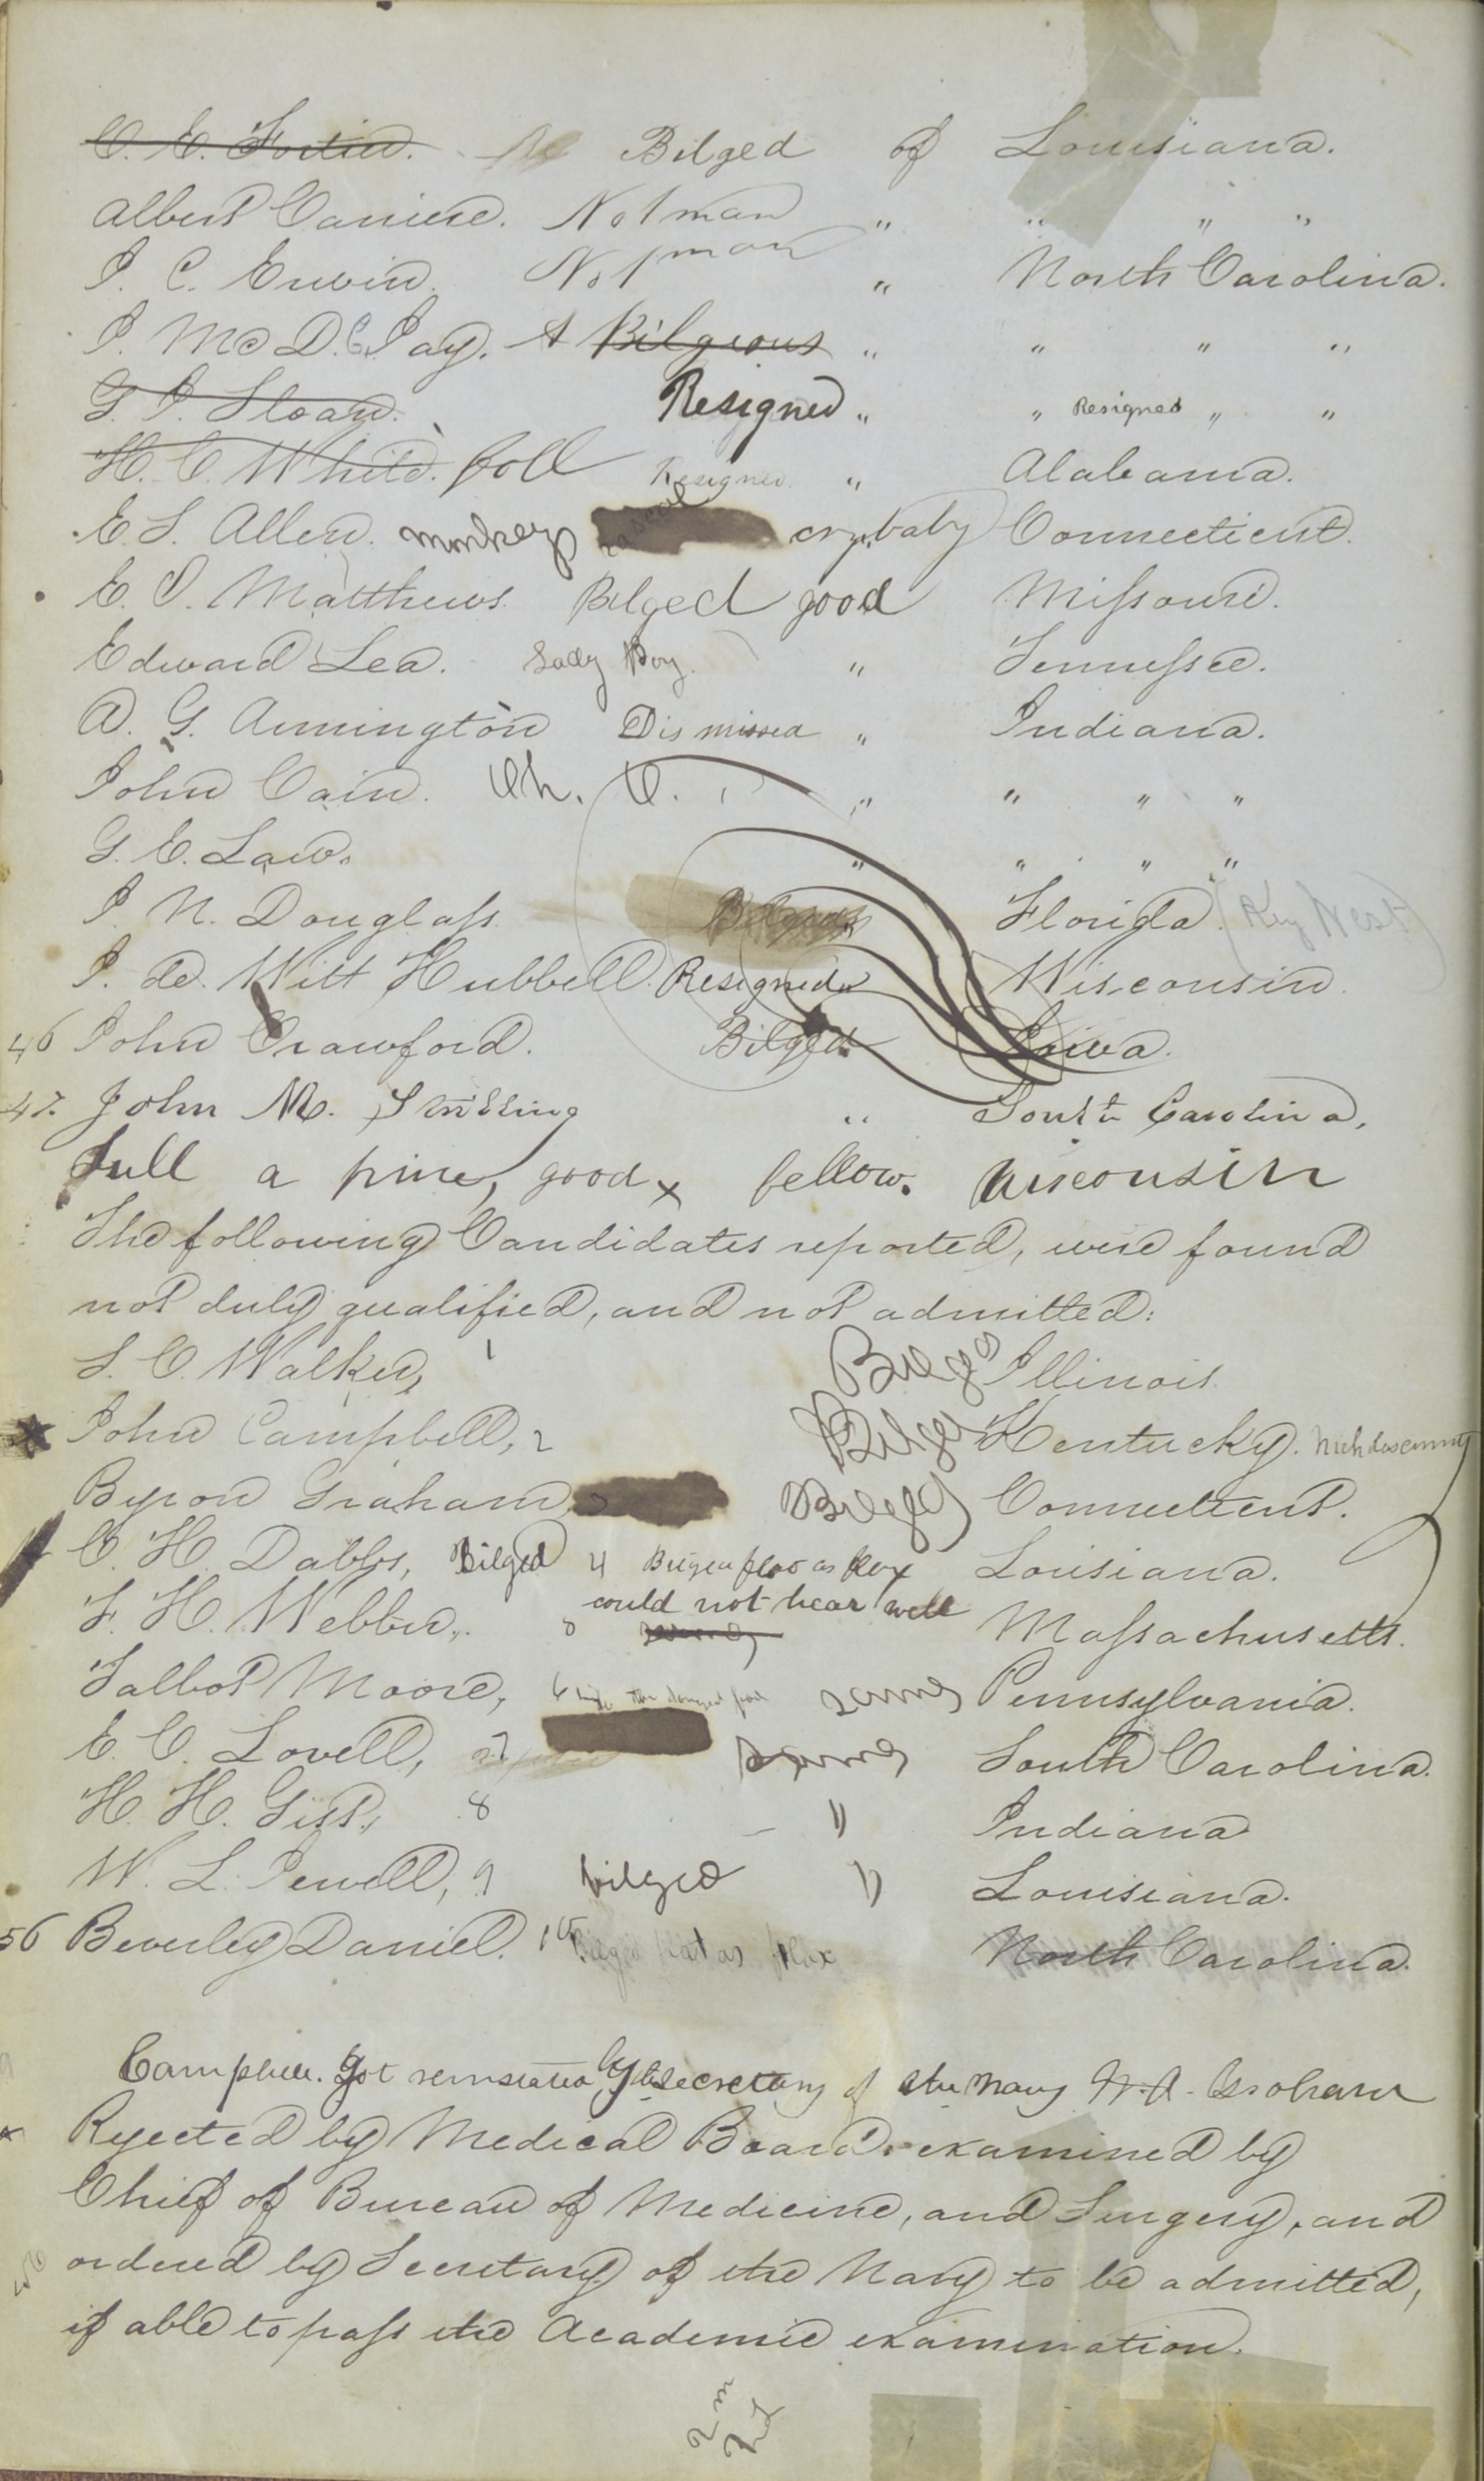 C. E. Fortier. Bilged of Louisiana.
Albert Carriere. No 1 man " " " "
J. C. Erwin. No 1 man " North Carolina.
J. McD. C. Jay. A Bilgious " " " "
G. J. Sloan. Resigned " " Resigned " "
H. C. White. foll Resigned " Alabama.
E. S. Allen. monkey rascal cry baby Connecticut.
E. O. Matthews. Bilged good Missouri.
Edward Lea. Lady Boy. " Tennessee.
A. G. Armington Dismissed " Indiana.
John Cain. Oh. O. " " " "
G. E. Law. " " " "
J. N. Douglass Bilged Florida. (Key West)
J. de. Witt Hubbell. Resigned " Wisconsin.
46 John Crawford. Bilged Iowa.
47. John M. Stribling " South Carolina,
full a prine, good x fellow. Wisconsin
The following Candidates reported, were found
not duly qualified, and not admitted:
S. C. Walker, 1 Bilged Illinois.
John Campbell, 2 Bilged Kentucky.
Byron Graham, 3 Bilged Connecticut.
C. H. Dabbs, Bilged 4 Louisiana.
could not hear well
F. H. Webber, Massachusetts.
Talbot Moore, 6 same Pennsylvania.
E. C. Lovell, 7 same South Carolina.
H. H. Gist, 8 " Indiana
W. L. Jewell, 9 bilged " Louisiana.
56 Beverley Daniel. 10 Bilged flat as flax North Carolina.
Campbell. Got reinstated by the Secretary of the Navy W. A. Graham
x Rejected by Medical Board. examined by
Chief of Bureau of Medicine, and Surgery, and
ordered by Secretary of the Navy to be admitted,
if able to pass the Academic examination.